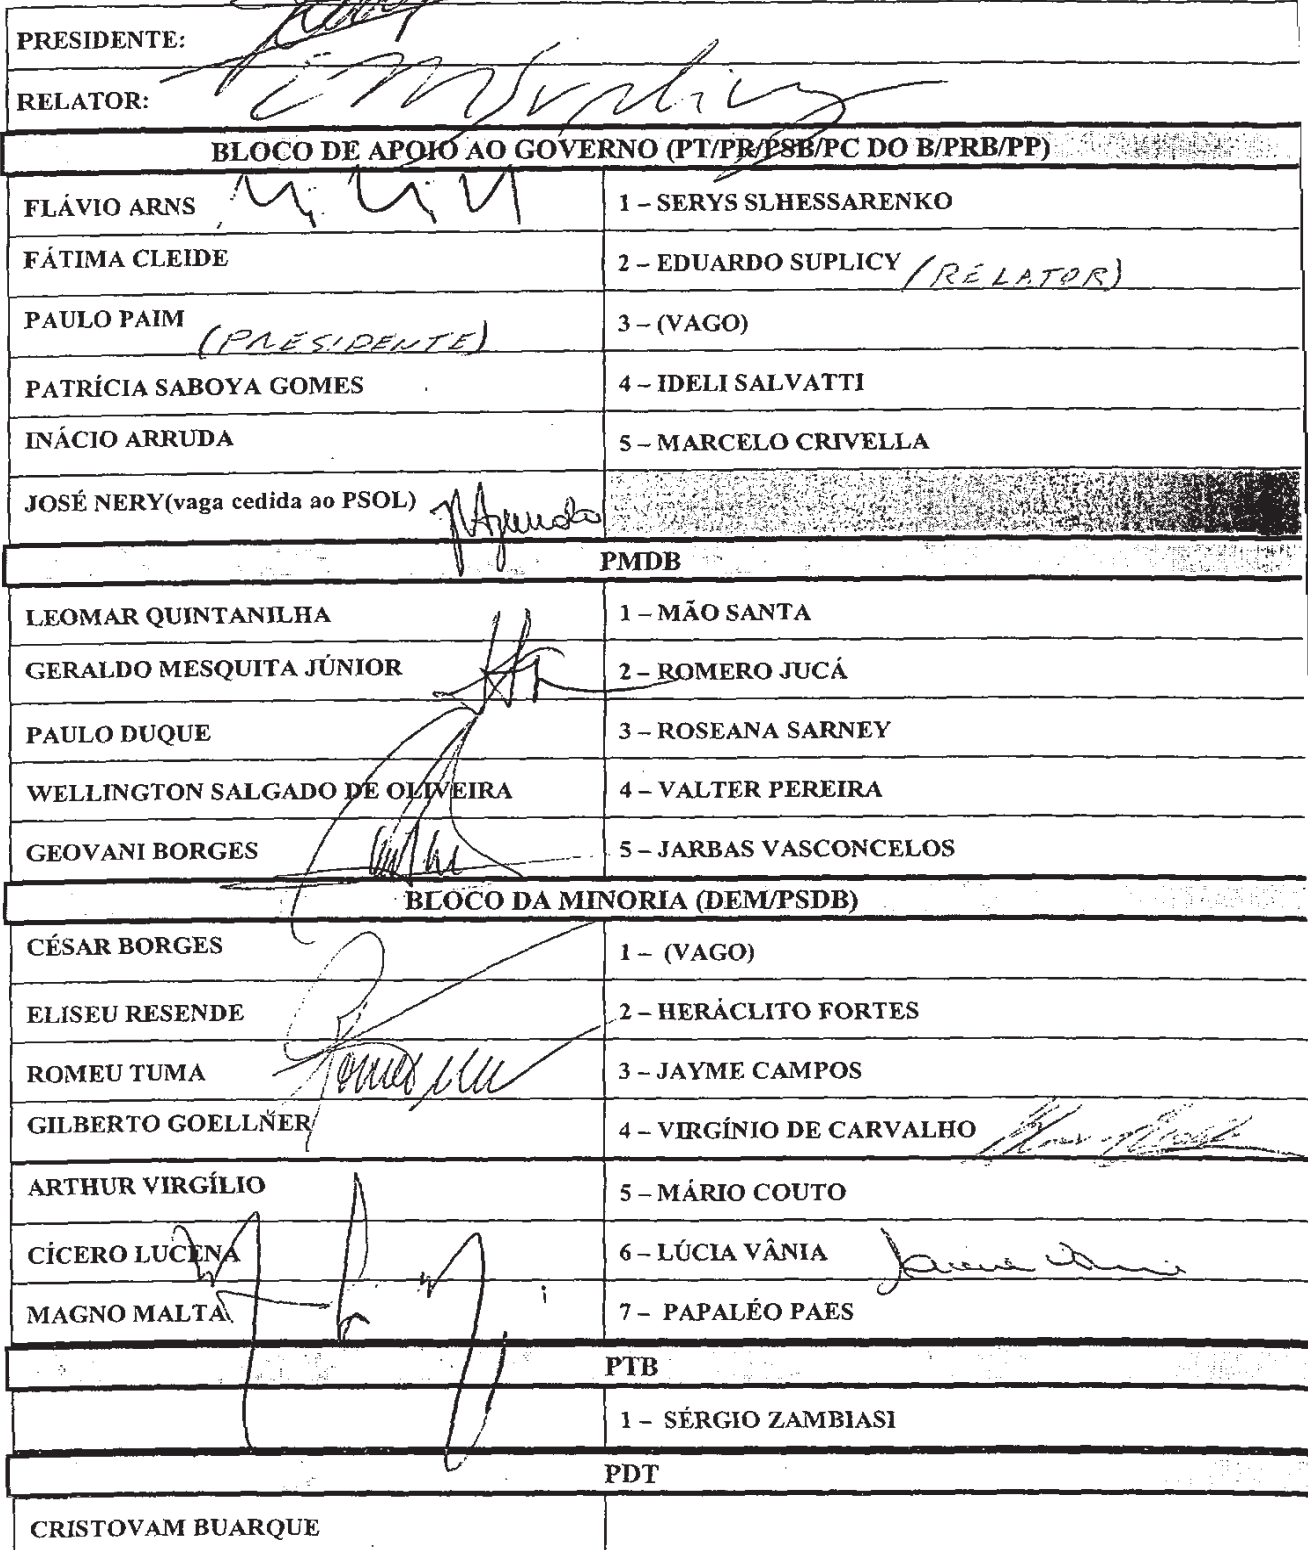 PRESIDENTE:
RELATOR:
BLOCO DE APOIO AO GOVERNO (PT/PR/PSB/PC DO B/PRB/PP)
FLÁVIO ARNS
1 – SERYS SLHESSARENKO
FÁTIMA CLEIDE
2 – EDUARDO SUPLICY (RELATOR)
PAULO PAIM (PRESIDENTE)
3 – (VAGO)
PATRÍCIA SABOYA GOMES
4 – IDELI SALVATTI
INÁCIO ARRUDA
5 – MARCELO CRIVELLA
JOSÉ NERY(vaga cedida ao PSOL)
PMDB
LEOMAR QUINTANILHA
1 – MÃO SANTA
GERALDO MESQUITA JÚNIOR
2 – ROMERO JUCÁ
PAULO DUQUE
3 – ROSEANA SARNEY
WELLINGTON SALGADO DE OLIVEIRA
4 – VALTER PEREIRA
GEOVANI BORGES
5 – JARBAS VASCONCELOS
BLOCO DA MINORIA (DEM/PSDB)
CÉSAR BORGES
1 – (VAGO)
ELISEU RESENDE
2 – HERÁCLITO FORTES
ROMEU TUMA
3 – JAYME CAMPOS
GILBERTO GOELLNER
4 – VIRGÍNIO DE CARVALHO
ARTHUR VIRGÍLIO
5 – MÁRIO COUTO
CÍCERO LUCENA
6 – LÚCIA VÂNIA
MAGNO MALTA
7 – PAPALÉO PAES
PTB
1 – SÉRGIO ZAMBIASI
PDT
CRISTOVAM BUARQUE